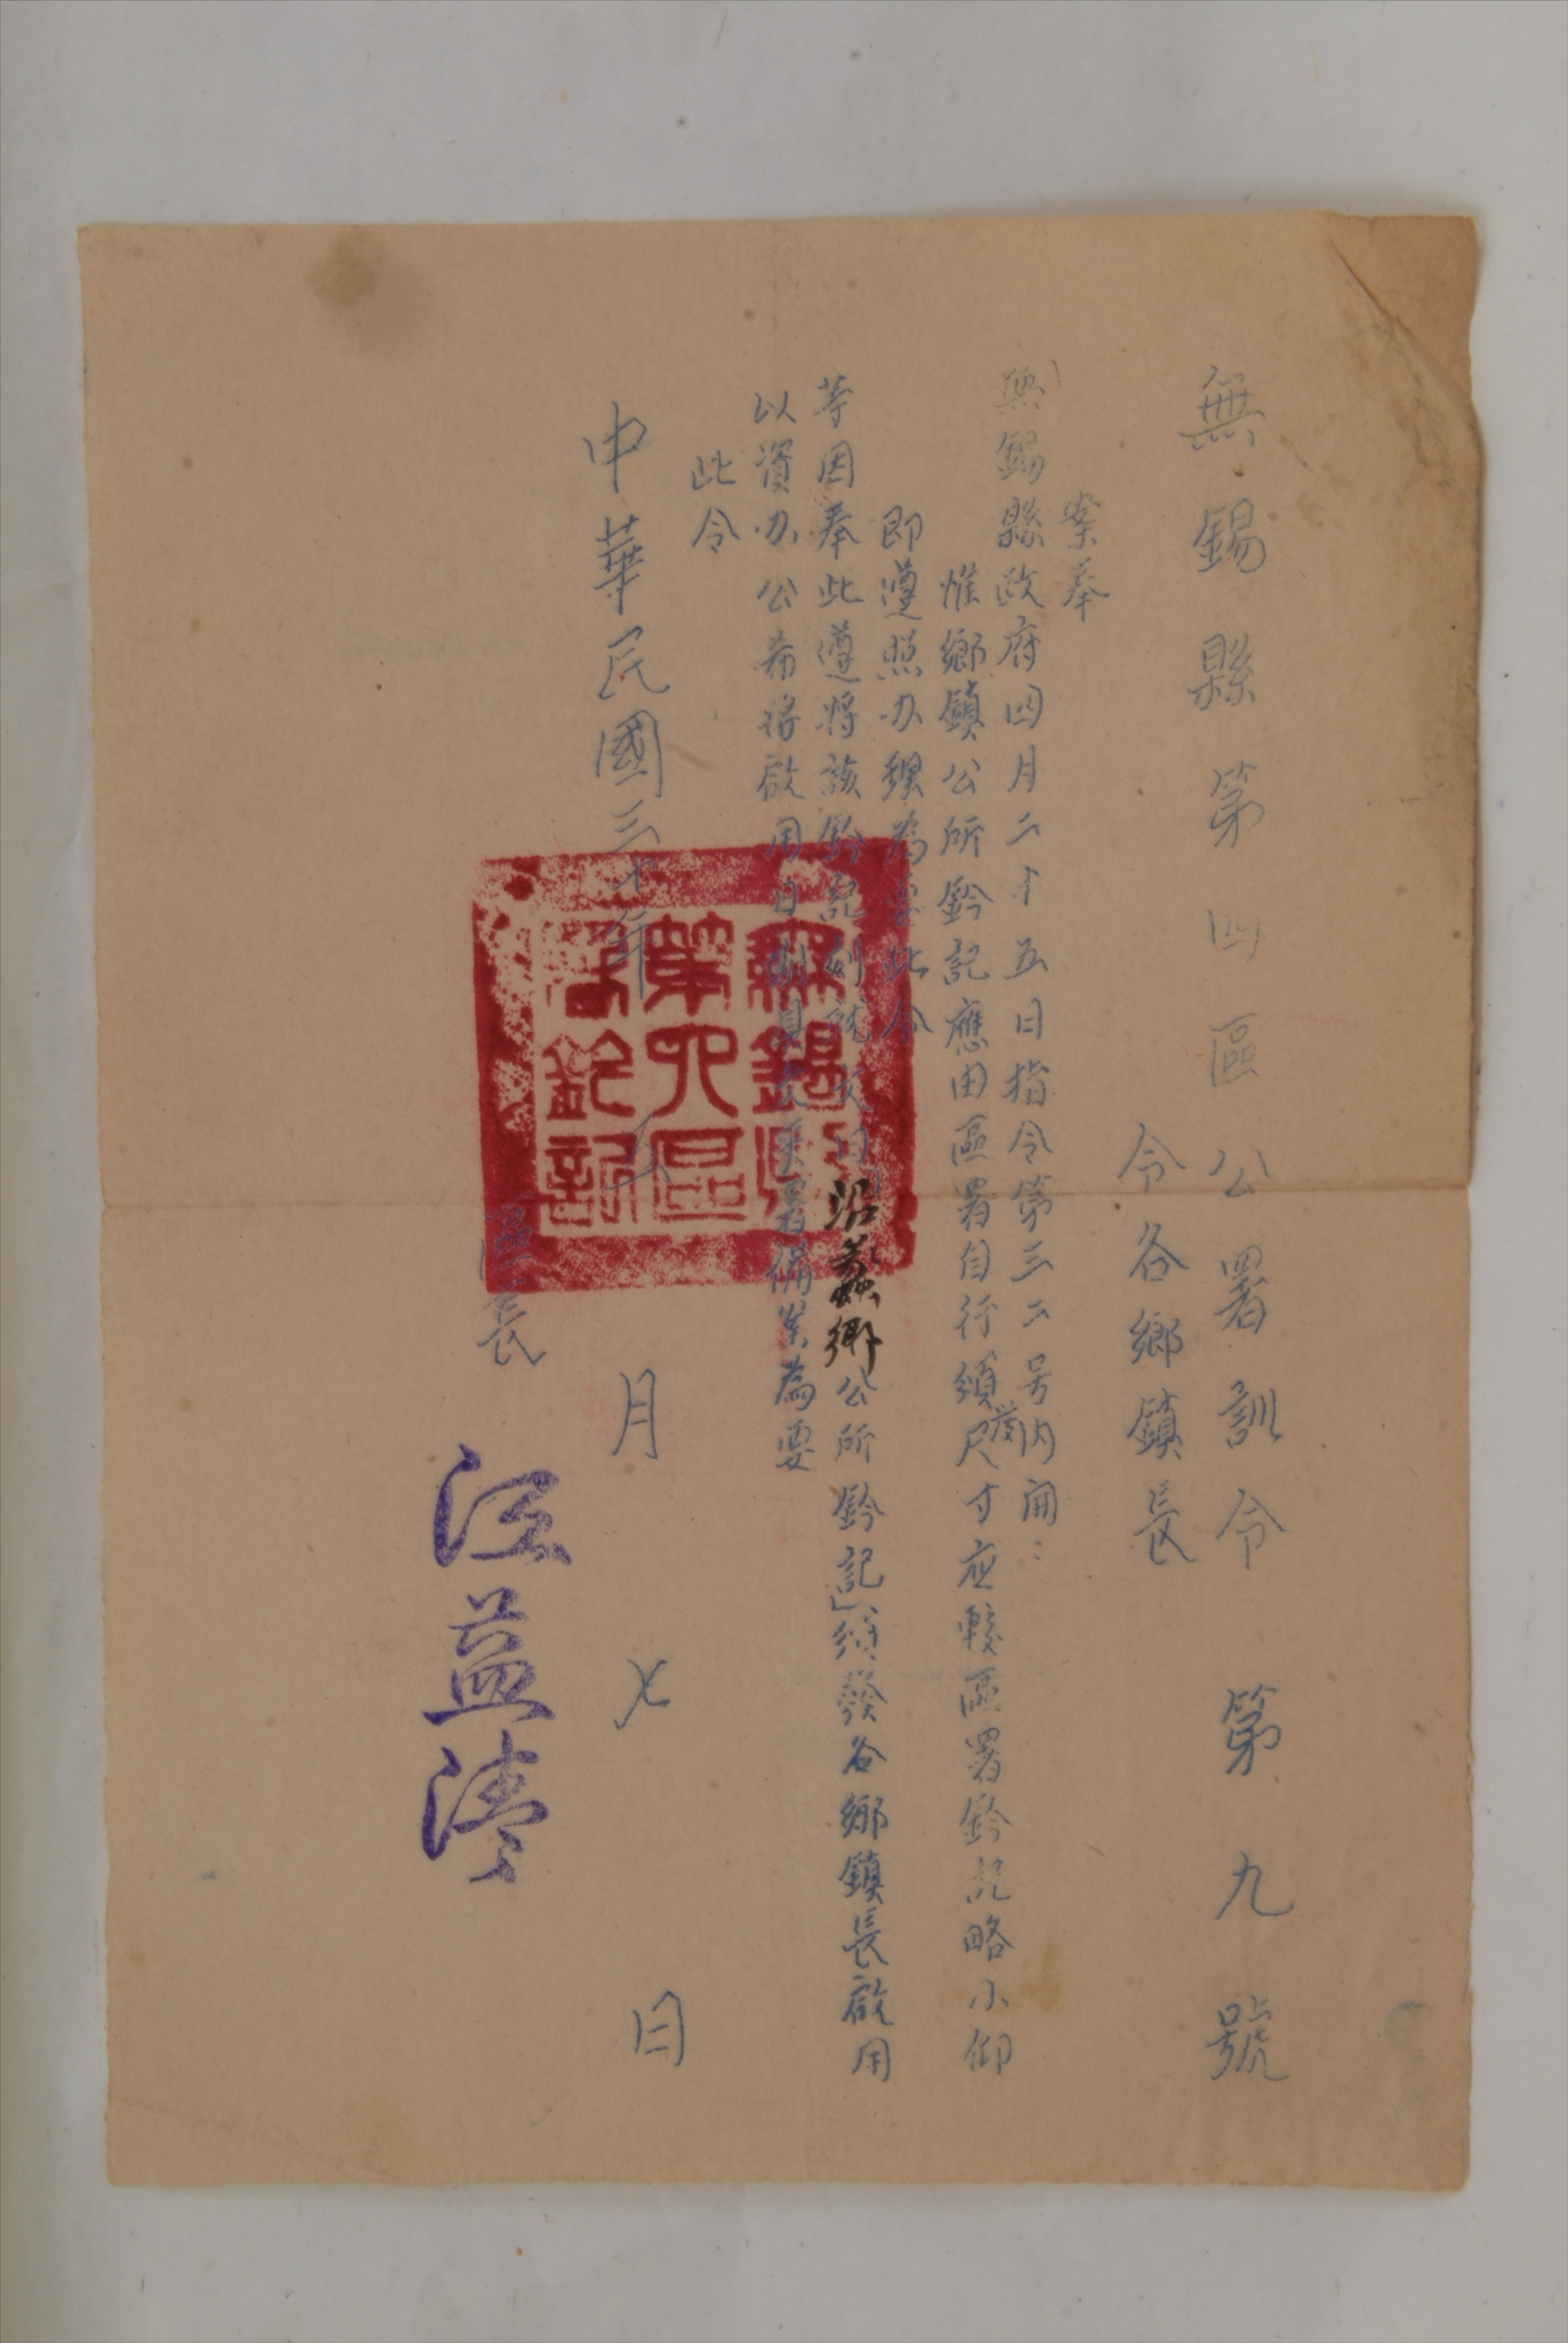 無錫縣第四區公署訓令 第九號
令各鄉鎮長
案奉
無錫縣政府四月二十五日指令第三二号内開：
惟鄉鎮公所鈐記應由區署自行頒發尺寸应較區署鈐記略小仰
即遵照办理為要此令
等因奉此遵將該鈐記刻就文曰「沿蠡鄉公所鈐記」頒發各鄉鎮長啟用
以資办公希將啟用日期具文來署備案為要
此令
中華民國三十年五月七日
區長
江益清
無錫縣
第四區
鈐記